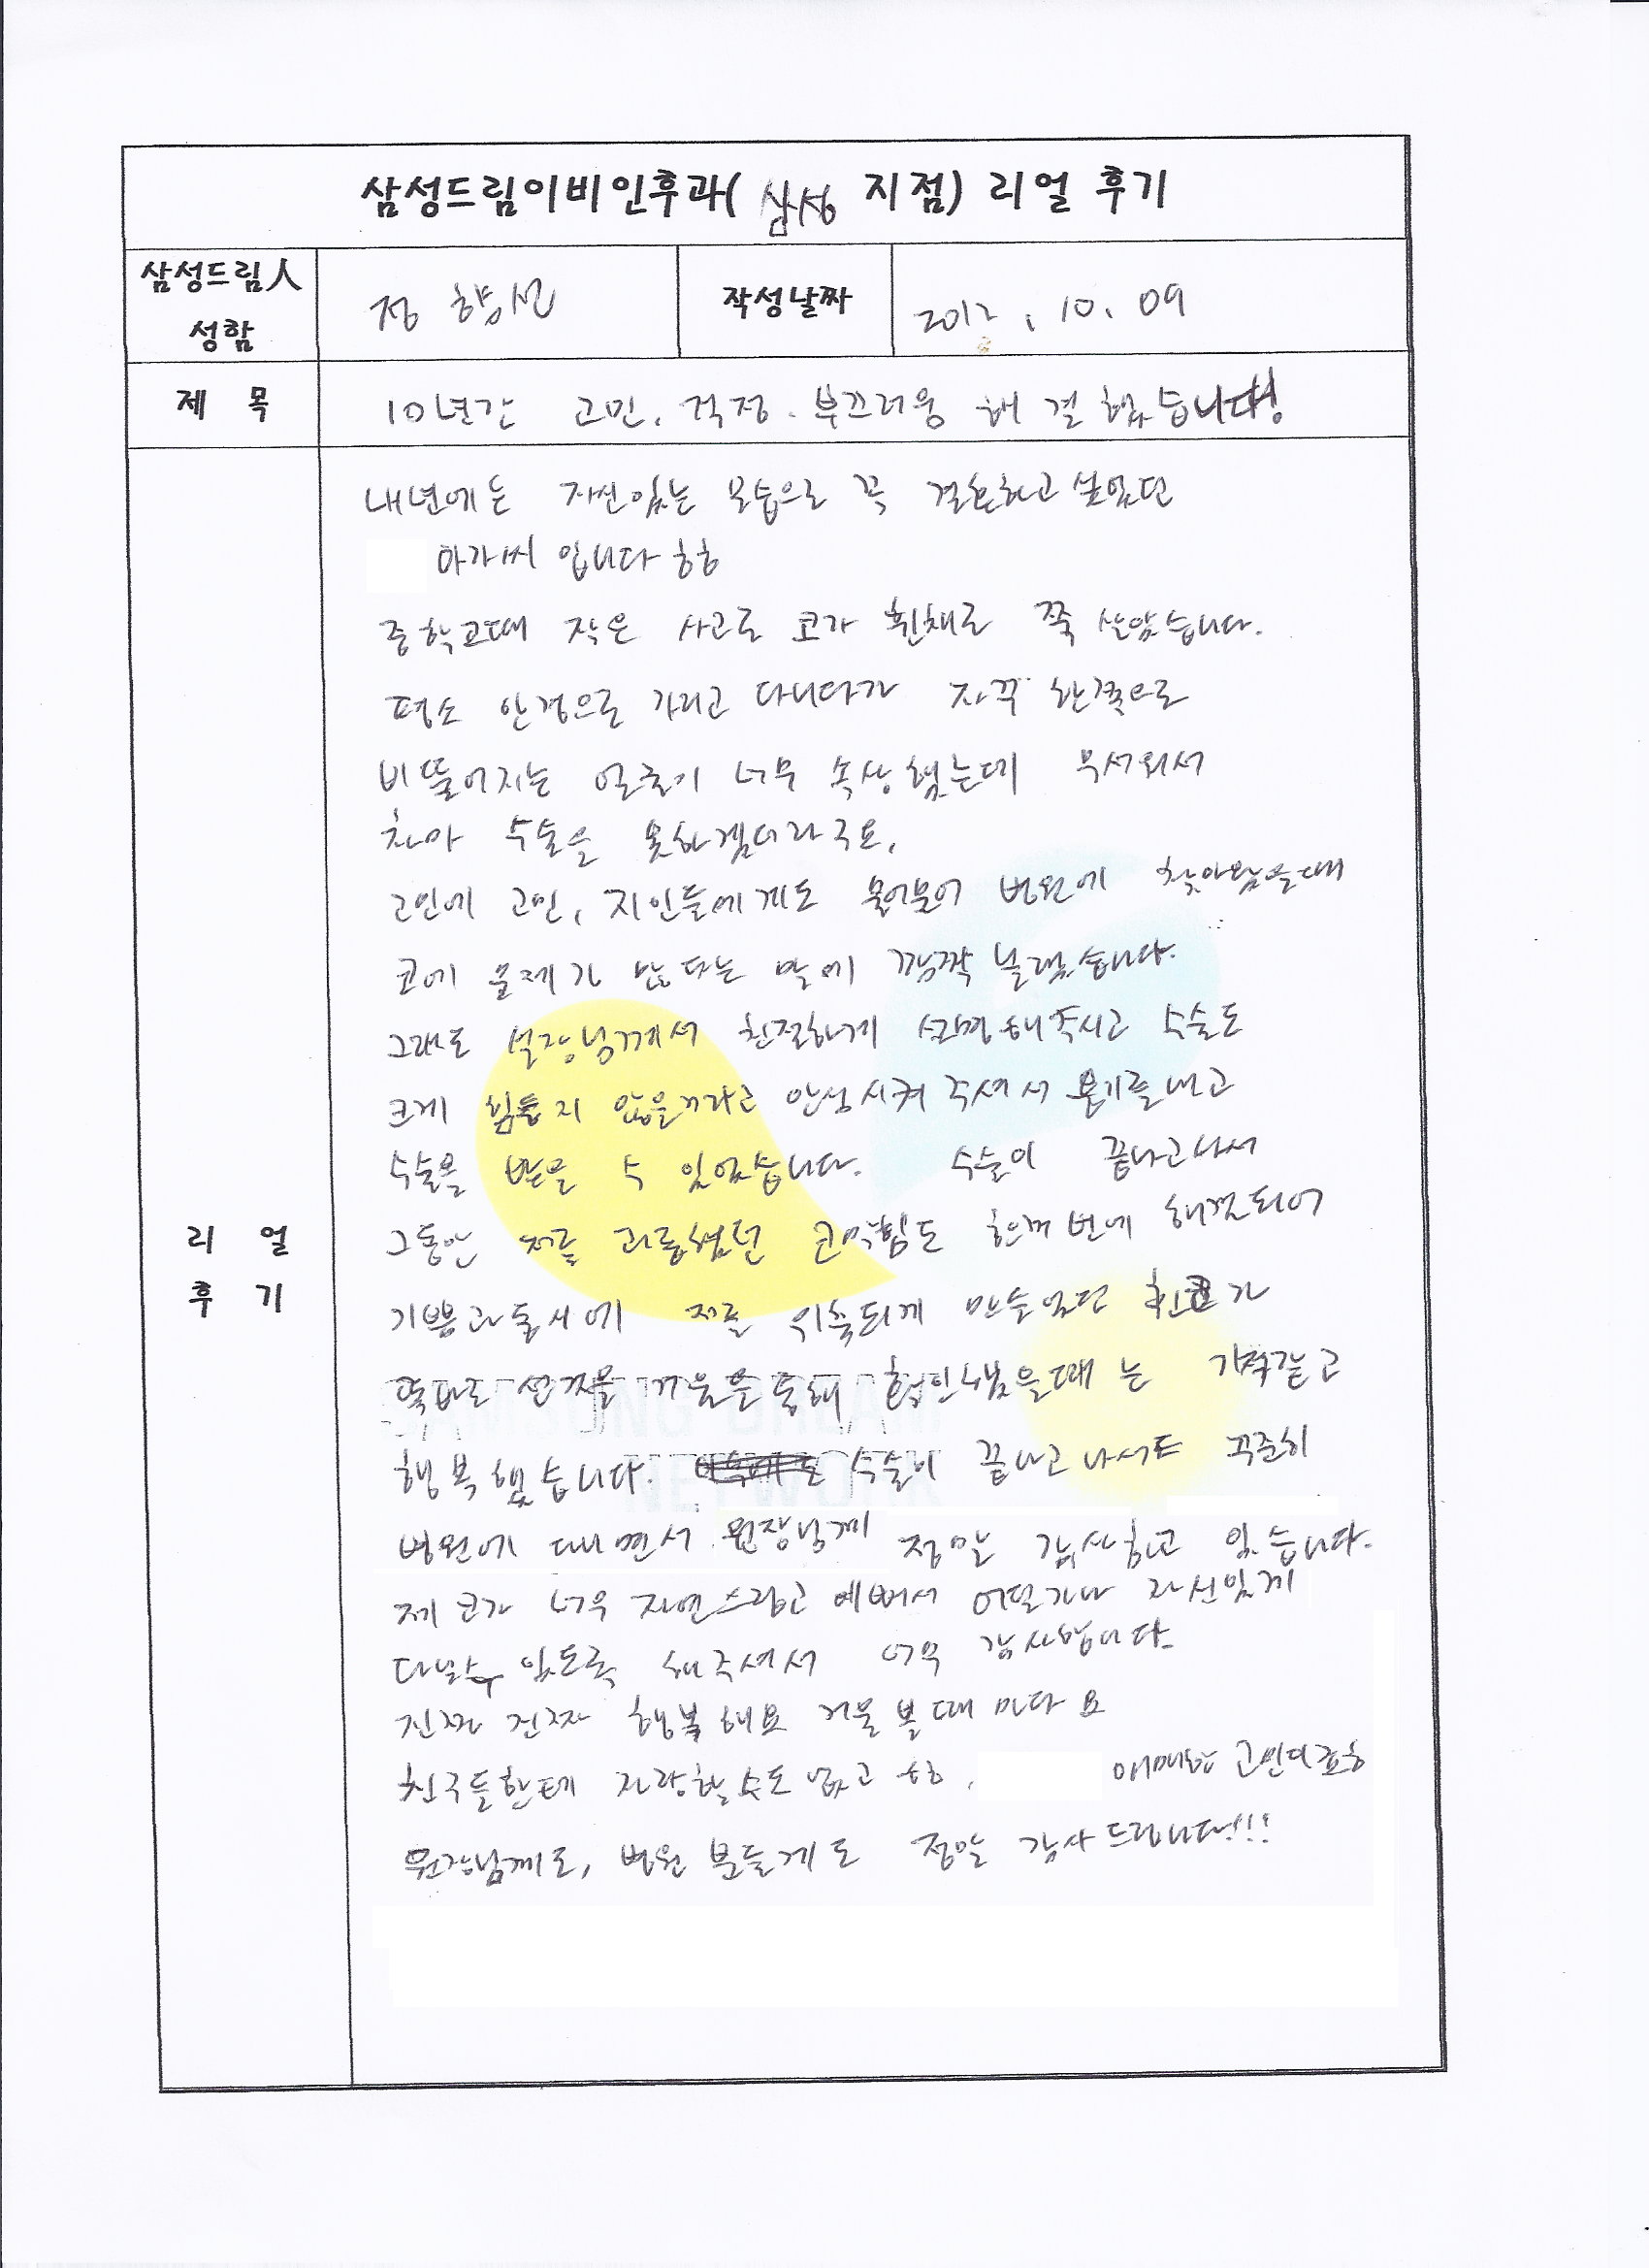 삼성드림이비인후과( 삼성 지점) 리얼 후기
삼성드림人
성함
정 향선
작성날짜
2012. 10. 09
제 목
10년간 고민. 걱정. 부끄러움 해결했습니다!
내년에는 자신있는 모습으로 꼭 결혼하고 싶었던
아가씨 입니다 ㅎㅎ
중학교때 작은 사고로 코가 휜채로 쭉 살았습니다.
평소 안경으로 가리고 다니다가 자꾸 한쪽으로
비뚤어지는 얼굴이 너무 속상했는데 무서워서
차마 수술을 못하겠더라구요.
고민에 고민, 지인들에게도 물어물어 병원에 찾아왔을때
코에 문제가 많다는 말에 깜짝 놀랬습니다.
그래도 실장님께서 친절하게 설명해주시고 수술도
크게 힘들지 않을거라고 안심시켜 주셔서 용기를내고
수술을 받을 수 있었습니다. 수술이 끝나고나서
그동안 저를 괴롭혔던 코막힘도 한꺼번에 해결되어
기쁨과동시에 저를 위축되게 만들었던 휜코가
똑바로 선것을 거울을통해 확인했을때는 기적같고
행복했습니다. 수술이 끝나고나서도 꾸준히
병원에 다니면서 원장님께 정말 감사하고 있습니다.
제 코가 너무 자연스럽고 예뻐서 어딜가나 자신있게
다닐수 있도록 해주셔서 너무 감사합니다.
진짜 진짜 행복해요 거울볼때마다요
친구들한테 자랑할수도 없고 ㅎㅎ, 애매한 고민이죠ㅎ
원장님께도, 병원 분들께도 정말 감사드립니다!!!
리 얼
후 기
SAMSUNG DREAM
NETWORK